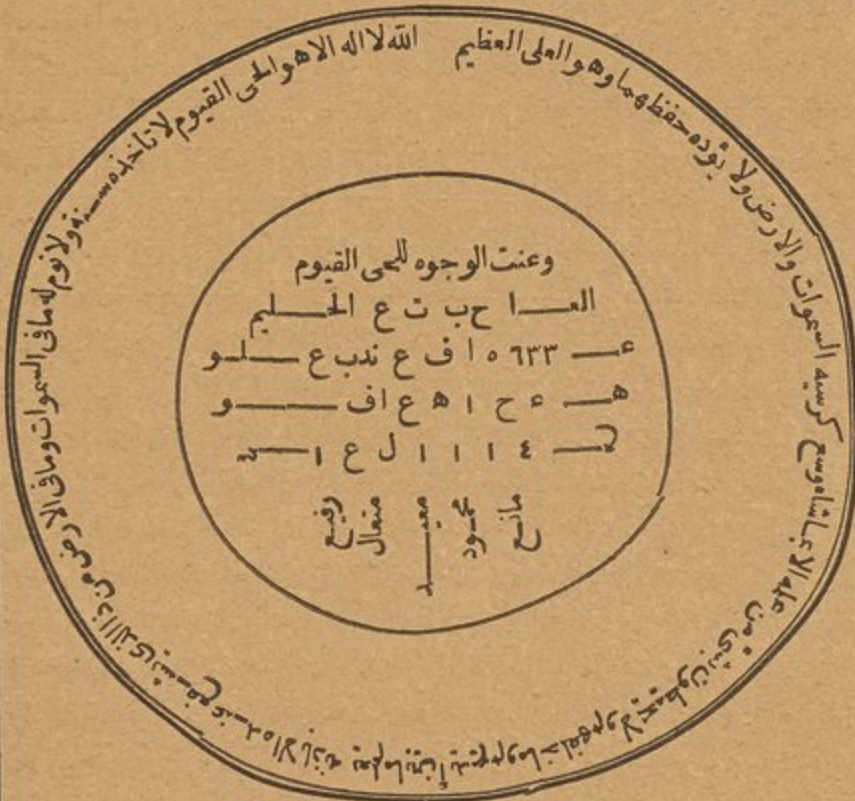 الله لا اله الا هو الحى القيوم لا تاخذه سـنة ولا نوم له ما فى السموات وما فى الارض من ذا الذى يشـفع عنـده الا باذنه يعلم ما بين أيديهم وما خلفهم ولا يحيطون بشئ من علمه الا بما شاء وسع كرسيه السموات والارض ولا يؤده حفظهما وهو العلى العظيم
وعنت الوجوه للحى القيوم
العـــدا حب ت ع الحـــليم
ء ٦٣٣ ٥ ا ف ع ندب ع لـو
هـ ء ح ا ه ع اف و
٤ ا ا ا ل ع ا
مانـع
محمـود
معيـــد
متعال
رفيع